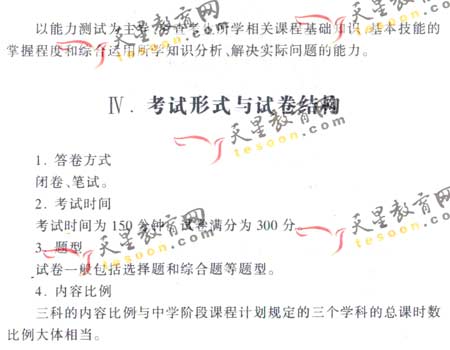 以能力测试为主导,考查学生所学相关课程基础知识、基本技能的
掌握程度和综合运用所学知识分析、解决实际问题的能力。
Ⅳ. 考试形式与试卷结构
1. 答卷方式
闭卷、笔试。
2. 考试时间
考试时间为150分钟,试卷满分为300分。
3. 题型
试卷一般包括选择题和综合题等题型。
4. 内容比例
三科的内容比例与中学阶段课程计划规定的三个学科的总课时数
比例大体相当。
天星教育网
tesoon.com
天星教育网
tesoon.com
天星教育网
tesoon.com
天星教育网
tesoon.com
天星教育网
tesoon.com
天星教育网
tesoon.com